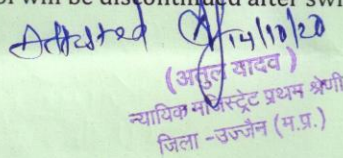 will be discontinued after sw
Attested
14/10/20
(अतुल यादव)
न्यायिक मजिस्ट्रेट प्रथम श्रेणी
जिला -उज्जैन (म.प्र.)